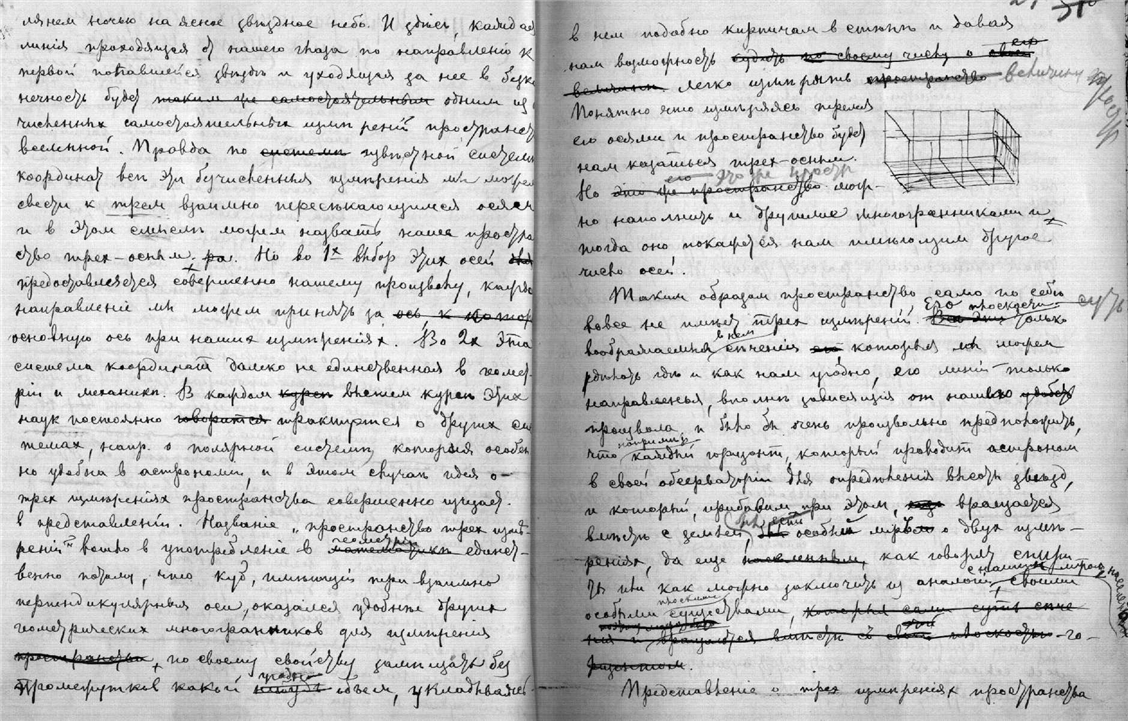 лянем ночью на ясное звѣздное небо. И здѣсь, каждая
линія проходящая отъ нашего глаза по направленію к
первой попавшейся звѣздѣ и уходящая за нее в безко
нечность будет таким же самостоятельным одним из
численных самостоятельных измѣреній пространст
вселенной. Правда по системѣ извѣстной системѣ
координат всѣ эти безчисленныя измѣренія мы можем
свести к трем взаимно пересѣкающимся осям
и в этом смыслѣ можем назвать наше простра
ство трех-осным. Но во 1х выбор этих осей
предоставляется совершенно нашему произволу, каждое
направленіе мы можем принять за ось к котор
основную ось при наших измѣреніях. Во 2х эта
система координат далеко не единственная в геомет
ріи и механикѣ. В каждом курсѣ высшем курсѣ этих
наук постоянно говорится трактуется о других си
темах, напр. о полярной системѣ, которая особен
но удобна в астрономіи, и в этом случаѣ идея о
трех измѣреніях пространства совершенно исчезает
в представленіи. Названіе "пространство трех измѣ
реній" вошло в употребленіе в геометріи математикѣ единст
венно потому, что куб, имѣющій три взаимно
перпендикулярныя оси, оказался удобнѣе других
геометрических многогранников для измѣренія
пространства, по своему свойству замѣщать без
промежутков какой угодно нибудь объем, укладываясь
в нем подобно кирпичам в стѣнѣ и давая
нам возможность судить по своему числу о его
величинѣ легко измѣрить пространство величину
Понятно что измѣряясь тремя
его осями и пространство будет
нам казаться трех-осным.
Но это же пространство мож-
но наполнить и другими многогранниками и
тогда оно покажется нам имѣющим другое
число осей.
Таким образом пространство само по себѣ
вовсе не имѣет трех измѣреній. Его плоскости суть только
воображаемыя в нем сѣченія которыя мы можем
дѣлать гдѣ и как нам угодно, его линіи только
направленья, вполнѣ зависящія от нашего
произвола, и было бы очень произвольно предположить,
что напримѣр каждый горизонт, который проводит астроном
в своей обсерваторіи для опредѣленія высоты звѣзд,
и который, прибавим при этом, вращается
вмѣстѣ с землей, есть особый мір о двух измѣ-
реніях, да еще населенный, как говорят спири
ты или как можно заключить из аналогіи с нашим міром, своими
особыми плоскими существами, которыя сами суть сѣче
нія и вращаются вмѣстѣ съ плоскостью го-
ризонтом.
Представленіе о трех измѣреніях пространства